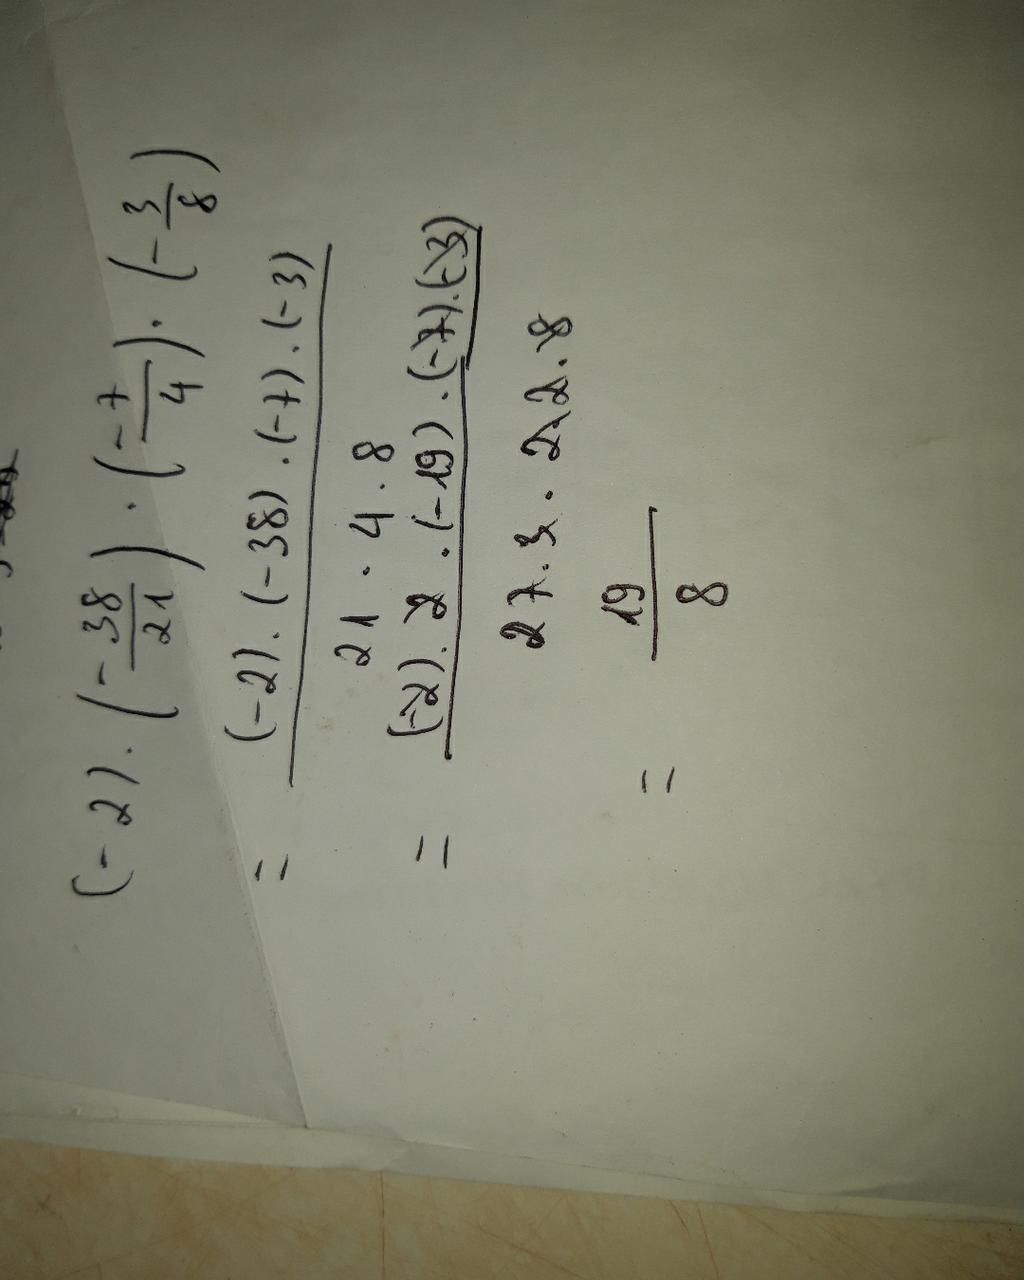 (-2).(-38/21).(-7/4).(-3/8)
= (-2).(-38).(-7).(-3)
21.4.8
= (-2).2.(-19).(-7).(-3)
7.3.2.2.8
= 19/8